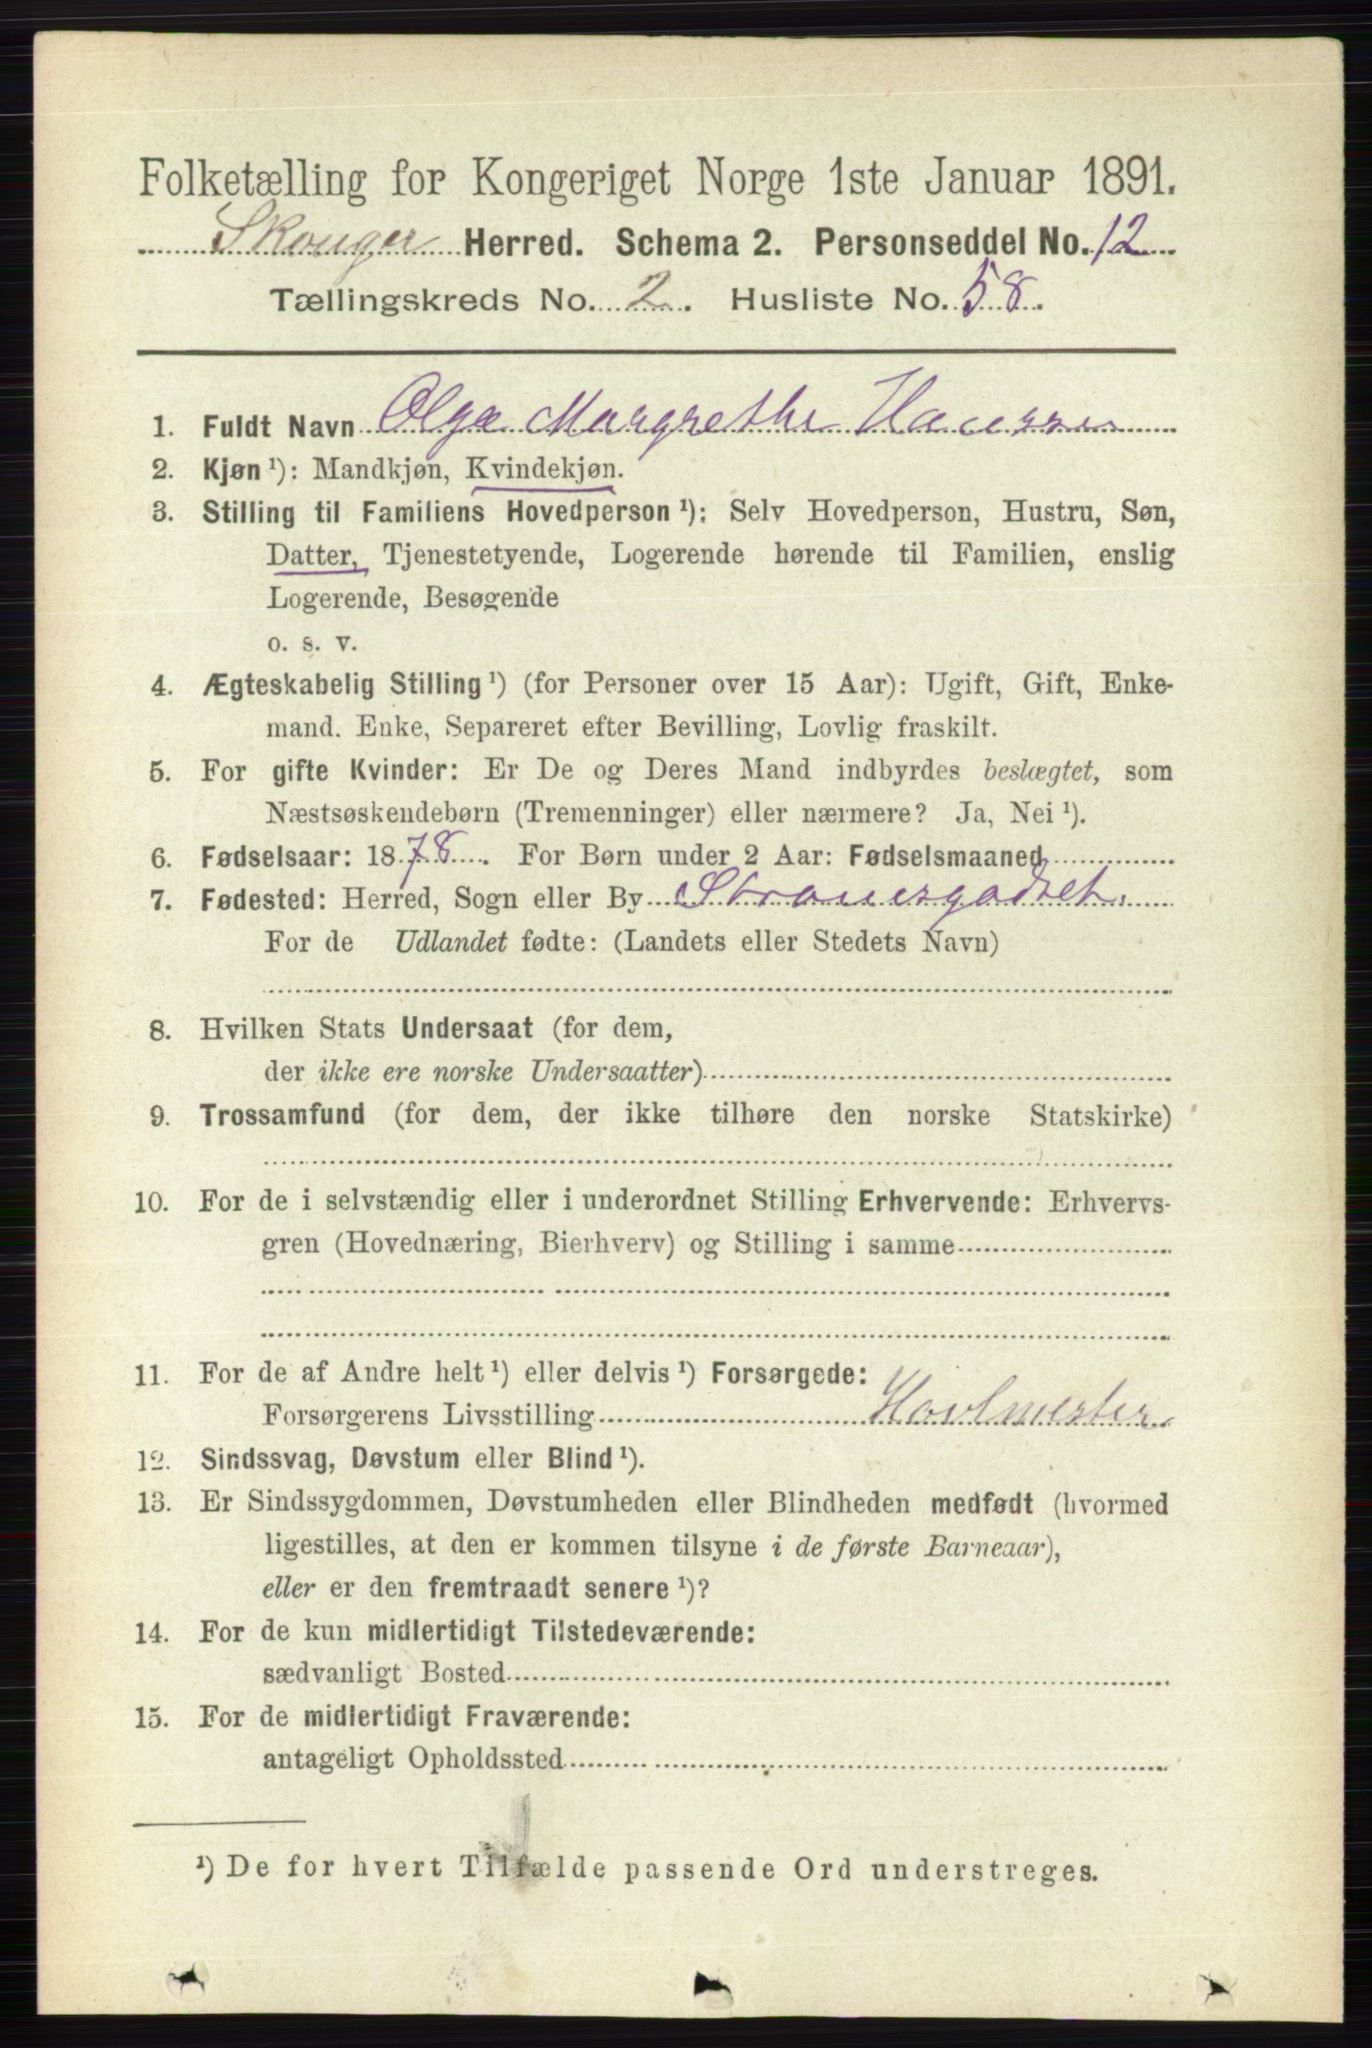 Folketælling for Kongeriget Norge 1ste Januar 1891.
Skouger Herred. Schema 2. Personseddel No. 12
Tællingskreds No. 2. Husliste No. 58.
1. Fuldt Navn Olga Margrethe Hanssen
2. Kjøn ¹): Mandkjøn, Kvindekjøn.
3. Stilling til Familiens Hovedperson ¹): Selv Hovedperson, Hustru, Søn,
Datter, Tjenestetyende, Logerende hørende til Familien, enslig
Logerende, Besøgende
o. s. v.
4. Ægteskabelig Stilling ¹) (for Personer over 15 Aar): Ugift, Gift, Enke-
mand. Enke, Separeret efter Bevilling, Lovlig fraskilt.
5. For gifte Kvinder: Er De og Deres Mand indbyrdes beslægtet, som
Næstsøskendebørn (Tremenninger) eller nærmere? Ja, Nei ¹).
6. Fødselsaar: 1878. For Børn under 2 Aar: Fødselsmaaned
7. Fødested: Herred, Sogn eller By
For de Udlandet fødte: (Landets eller Stedets Navn)
8. Hvilken Stats Undersaat (for dem,
der ikke ere norske Undersaatter)
9. Trossamfund (for dem, der ikke tilhøre den norske Statskirke)
10. For de i selvstændig eller i underordnet Stilling Erhvervende: Erhvervs-
gren (Hovednæring, Bierhverv) og Stilling i samme
11. For de af Andre helt ¹) eller delvis ¹) Forsørgede:
Forsørgerens Livsstilling
12. Sindssvag, Døvstum eller Blind ¹).
13. Er Sindssygdommen, Døvstumheden eller Blindheden medfødt (hvormed
ligestilles, at den er kommen tilsyne i de første Barneaar),
eller er den fremtraadt senere ¹)?
14. For de kun midlertidigt Tilstedeværende:
sædvanligt Bosted
15. For de midlertidigt Fraværende:
antageligt Opholdssted
¹) De for hvert Tilfælde passende Ord understreges.